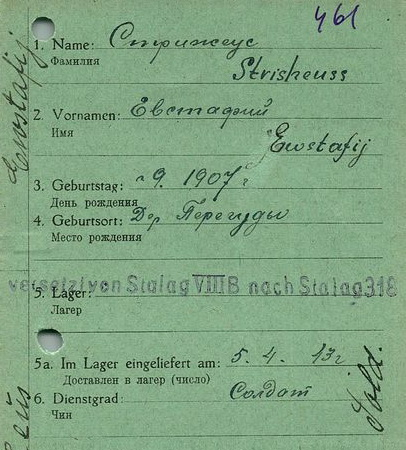 461
1. Name: Стрижеус
Фамилия
Strisheuss
2. Vornamen: Евстафий
Имя
Ewstafij
3. Geburtstag: 9. 1907 г
День рождения
4. Geburtsort: Дер Перегуды
Место рождения
versetzt von Stalag VIII B nach Stalag 318
5. Lager:
Лагер
5a. Im Lager eingeliefert am: 5. 4. 43г
Доставлен в лагер (число)
6. Dienstgrad: Солдат
Чин
Sold.
Ewostafij